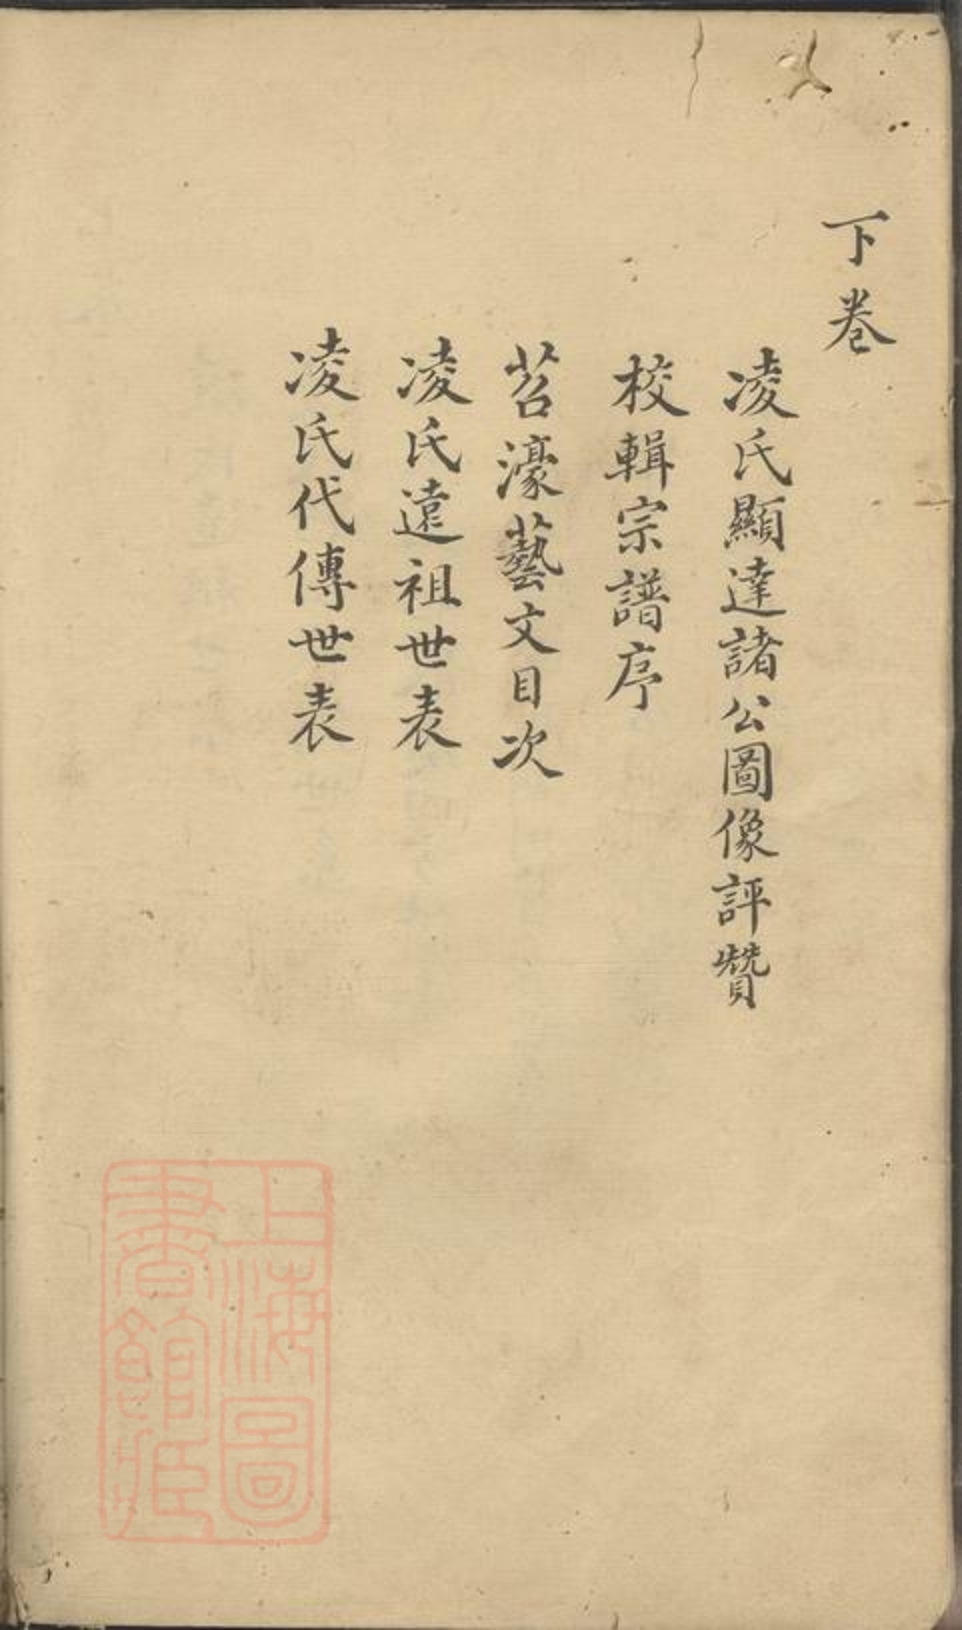 下卷
凌氏顯達諸公圖像評贊
校輯宗譜序
苕濠藝文目次
凌氏遠祖世表
凌氏代傳世表
上海圖
書館藏